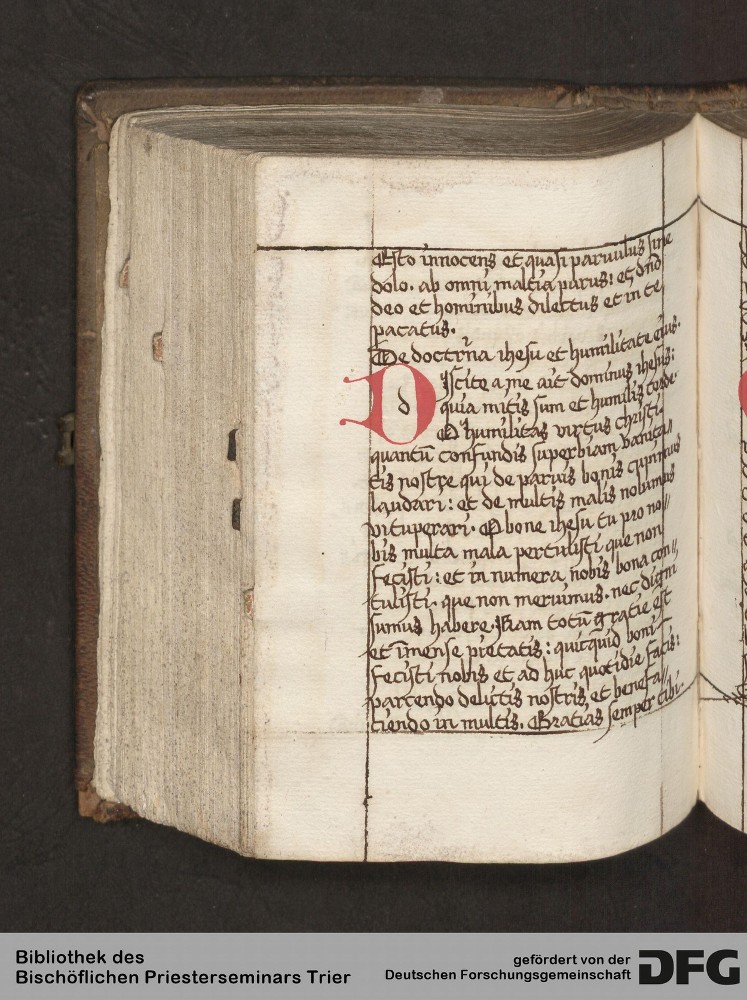 Esto innocens et quasi parvulus sine
dolo. ab omni malicia purus: et dño
deo et hominibus dilectus et in te
pacatus.
De doctrĩa ihesu et humilitate eius.
D d Iscite a me ait dominus ihesus:
quia mitis sum et humilis corde.
O humilitas virtus christi.
quantũ confundis superbiam vanita
tis nostre qui de parvis bonis cupimus
laudari: et de multis malis nolumus
vituperari. O bone ihesu tu pro no//
bis multa mala pertulisti que non
fecisti: et in numera nobis bona con//
tulisti. que non meruimus. nec digni
sumus habere. Nam totũ gratie est
et ĩmense pietatis: quicquid boni
fecisti nobis et ad huc quotidie facis:
parcendo delictis nostris et benefa//
ciendo in multis. Gratias semper tibi.
Bibliothek des
Bischöflichen Priesterseminars Trier
gefördert von der
Deutschen Forschungsgemeinschaft
DFG